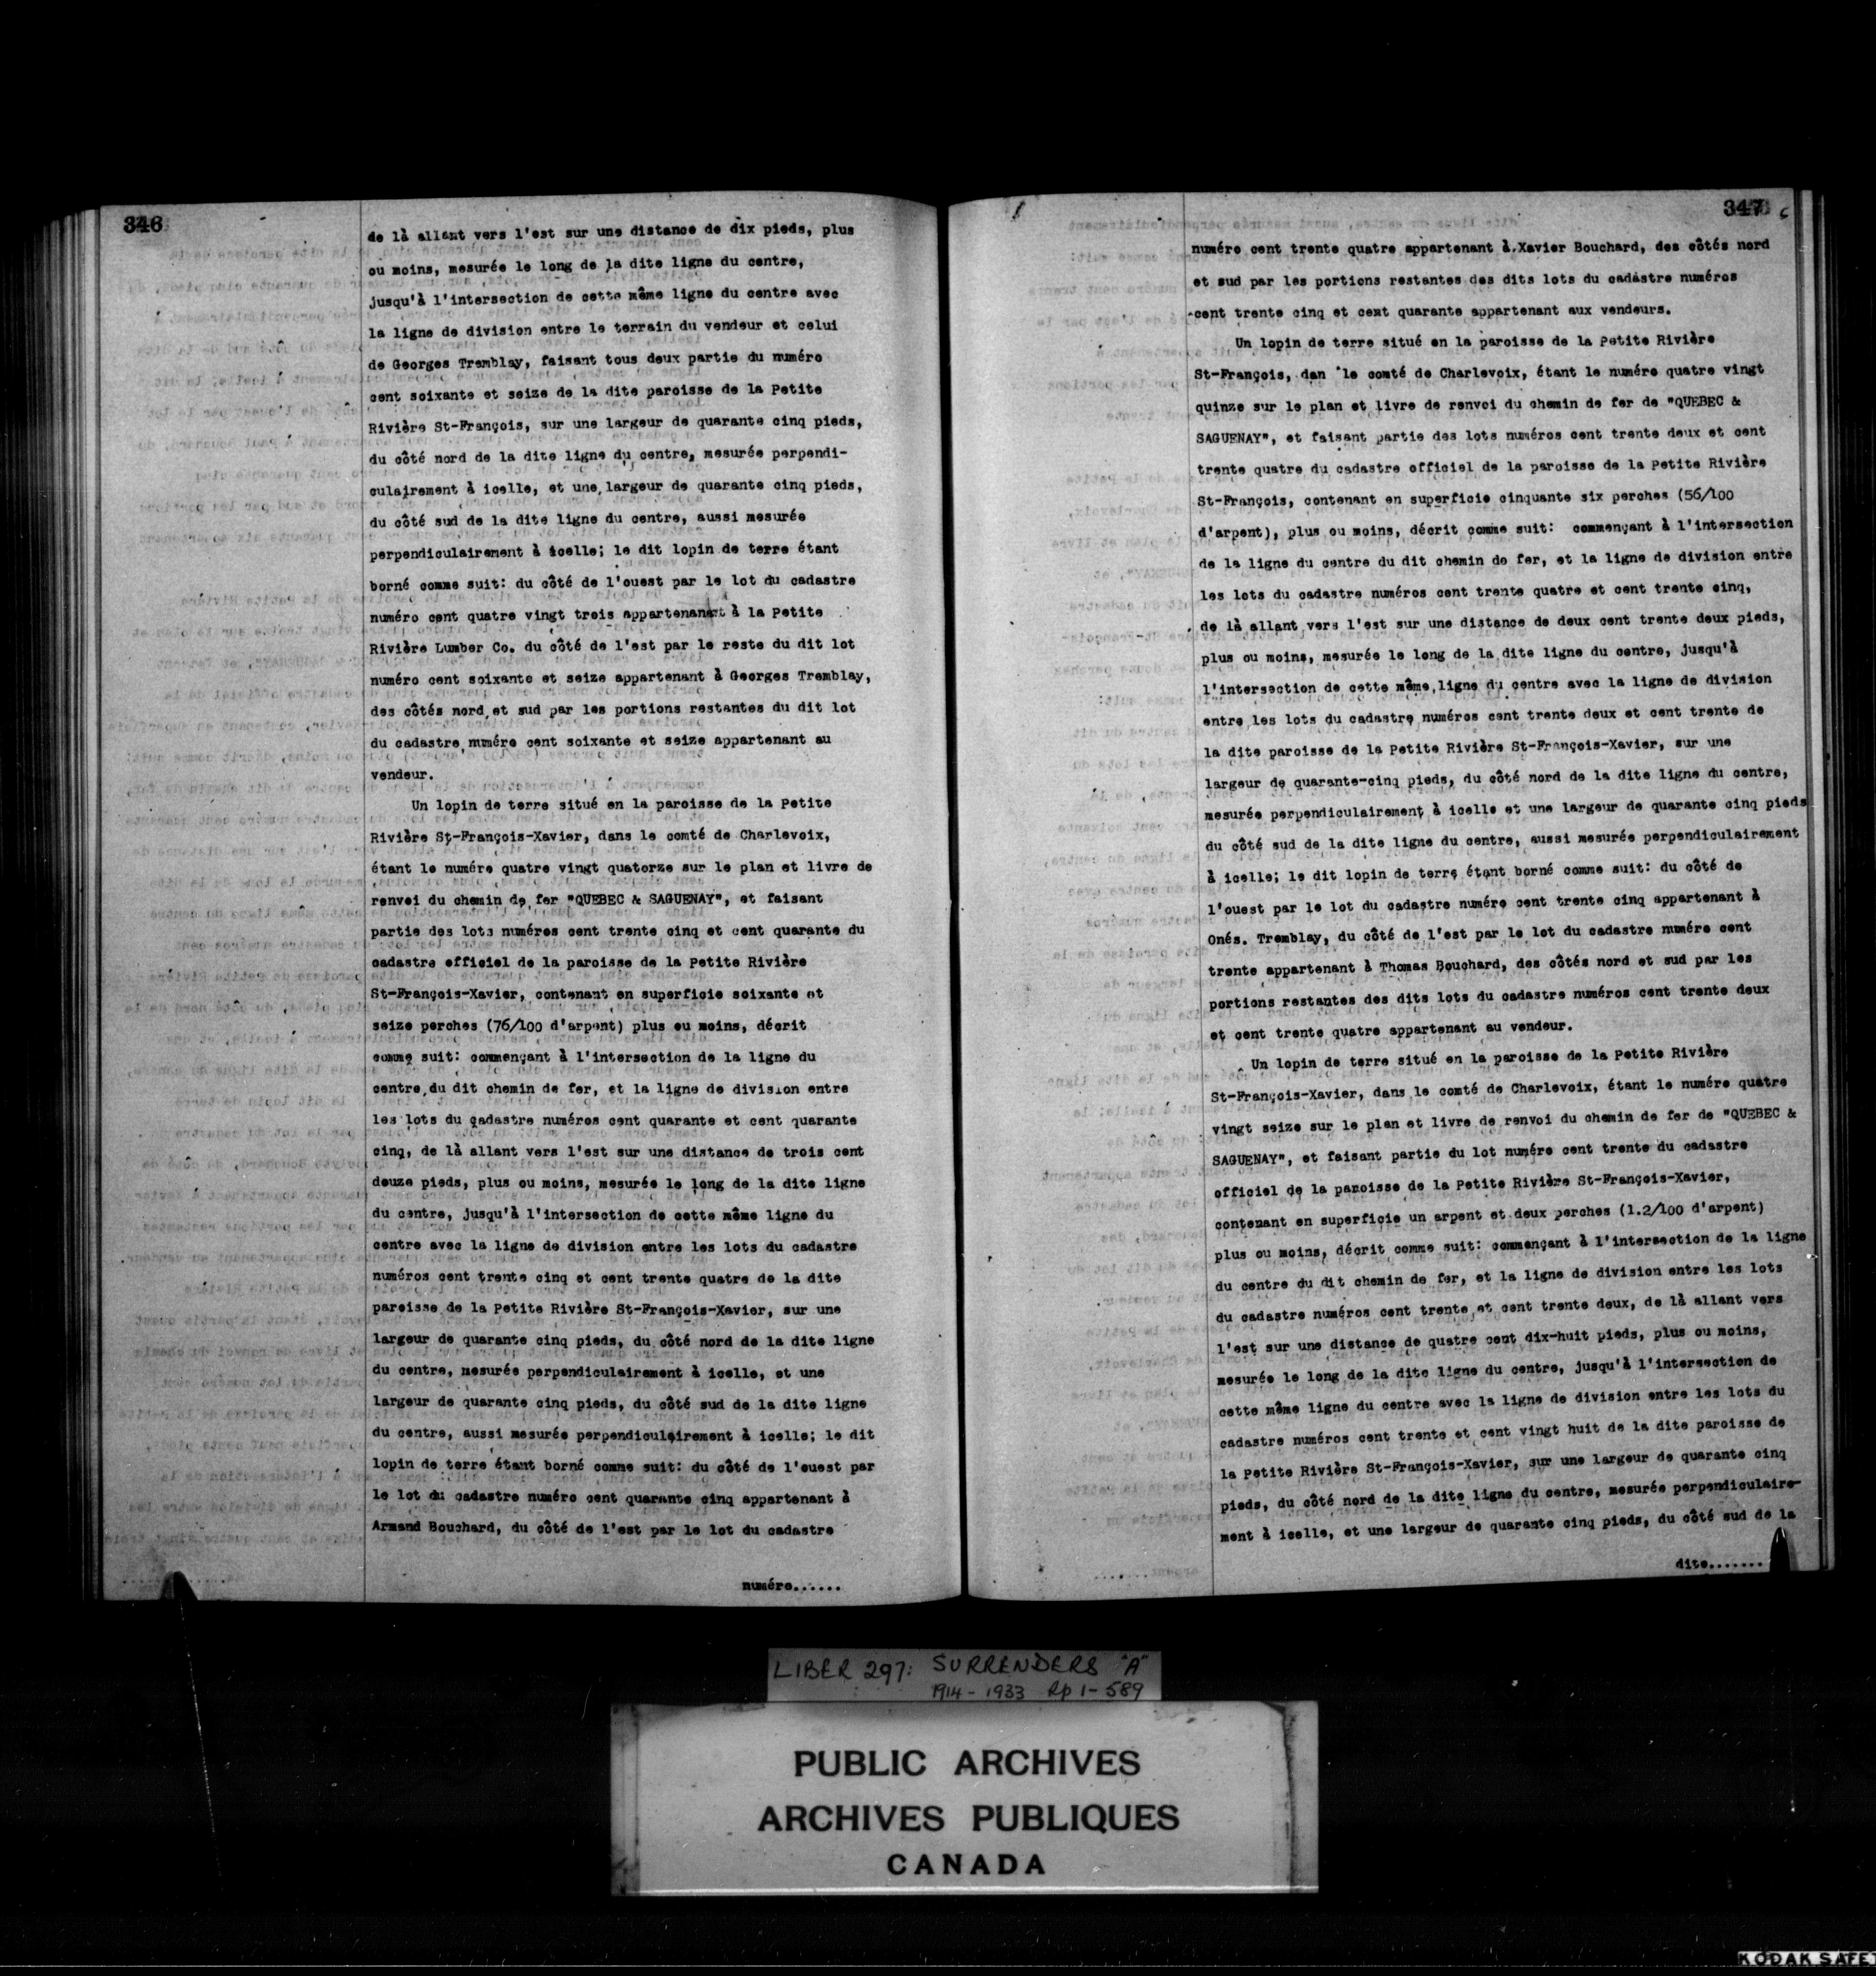 346
de là allant vers l'est sur une distance de dix pieds, plus
ou moins, mesurée le long de la dite ligne du centre,
jusqu'à l'intersection de cette même ligne du centre avec
la ligne de division entre le terrain du vendeur et celui
de Georges Tremblay, faisant tous deux partie du numéro
cent soixante et seize de la dite paroisse de la Petite
Rivière St-François, sur une largeur de quarante cinq pieds,
du côté nord de la dite ligne du centre, mesurée perpendi-
culairement à icelle, et une largeur de quarante cinq pieds,
du côté sud de la dite ligne du centre, aussi mesurée
perpendiculairement à icelle; le dit lopin de terre étant
borné comme suit: du côté de l'ouest par le lot du cadastre
numéro cent quatre vingt trois appartenant à la Petite
Rivière Lumber Co. du côté de l'est par le reste du dit lot
numéro cent soixante et seize appartenant à Georges Tremblay,
des côtés nord et sud par les portions restantes du dit lot
du cadastre numéro cent soixante et seize appartenant au
vendeur.
Un lopin de terre situé en la paroisse de la Petite
Rivière St-François-Xavier, dans le comté de Charlevoix,
étant le numéro quatre vingt quatorze sur le plan et livre de
renvoi du chemin de fer "QUEBEC & SAGUENAY", et faisant
partie des lots numéros cent trente cinq et cent quarante du
cadastre officiel de la paroisse de la Petite Rivière
St-François-Xavier, contenant en superficie soixante et
seize perches (76/100 d'arpent) plus ou moins, décrit
comme suit: commençant à l'intersection de la ligne du
centre du dit chemin de fer, et la ligne de division entre
les lots du cadastre numéros cent quarante et cent quarante
cinq, de là allant vers l'est sur une distance de trois cent
douze pieds, plus ou moins, mesurée le long de la dite ligne
du centre, jusqu'à l'intersection de cette même ligne du
centre avec la ligne de division entre les lots du cadastre
numéros cent trente cinq et cent trente quatre de la dite
paroisse de la Petite Rivière St-François-Xavier, sur une
largeur de quarante cinq pieds, du côté nord de la dite ligne
du centre, mesurée perpendiculairement à icelle, et une
largeur de quarante cinq pieds, du côté sud de la dite ligne
du centre, aussi mesurée perpendiculairement à icelle; le dit
lopin de terre étant borné comme suit: du côté de l'ouest par
le lot du cadastre numéro cent quarante cinq appartenant à
Armand Bouchard, du côté de l'est par le lot du cadastre
numéro......
347
numéro cent trente quatre appartenant à Xavier Bouchard, des côtés nord
et sud par les portions restantes des dits lots du cadastre numéros
cent trente cinq et cent quarante appartenant aux vendeurs.
Un lopin de terre situé en la paroisse de la Petite Rivière
St-François, dan le comté de Charlevoix, étant le numéro quatre vingt
quinze sur le plan et livre de renvoi du chemin de fer de "QUEBEC &
SAGUENAY", et faisant partie des lots numéros cent trente deux et cent
trente quatre du cadastre officiel de la paroisse de la Petite Rivière
St-François, contenant en superficie cinquante six perches (56/100
d'arpent), plus ou moins, décrit comme suit: commençant à l'intersection
de la ligne du centre du dit chemin de fer, et la ligne de division entre
les lots du cadastre numéros cent trente quatre et cent trente cinq,
de là allant vers l'est sur une distance de deux cent trente deux pieds,
plus ou moins, mesurée le long de la dite ligne du centre, jusqu'à
l'intersection de cette même ligne du centre avec la ligne de division
entre les lots du cadastre numéros cent trente deux et cent trente de
la dite paroisse de la Petite Rivière St-François-Xavier, sur une
largeur de quarante-cinq pieds, du côté nord de la dite ligne du centre,
mesurée perpendiculairement à icelle et une largeur de quarante cinq pieds
du côté sud de la dite ligne du centre, aussi mesurée perpendiculairement
à icelle; le dit lopin de terre étant borné comme suit: du côté de
l'ouest par le lot du cadastre numéro cent trente cinq appartenant à
Onés. Tremblay, du côté de l'est par le lot du cadastre numéro cent
trente appartenant à Thomas Bouchard, des côtés nord et sud par les
portions restantes des dits lots du cadastre numéros cent trente deux
et cent trente quatre appartenant au vendeur.
Un lopin de terre situé en la paroisse de la Petite Rivière
St-François-Xavier, dans le comté de Charlevoix, étant le numéro quatre
vingt seize sur le plan et livre de renvoi du chemin de fer de "QUEBEC &
SAGUENAY", et faisant partie du lot numéro cent trente du cadastre
officiel de la paroisse de la Petite Rivière St-François-Xavier,
contenant en superficie un arpent et deux perches (1.2/100 d'arpent)
plus ou moins, décrit comme suit: commençant à l'intersection de la ligne
du centre du dit chemin de fer, et la ligne de division entre les lots
du cadastre numéros cent trente et cent trente deux, de là allant vers
l'est sur une distance de quatre cent dix-huit pieds, plus ou moins,
mesurée le long de la dite ligne du centre, jusqu'à l'intersection de
cette même ligne du centre avec la ligne de division entre les lots du
cadastre numéros cent trente et cent vingt huit de la dite paroisse de
la Petite Rivière St-François-Xavier, sur une largeur de quarante cinq
pieds, du côté nord de la dite ligne du centre, mesurée perpendiculaire-
ment à icelle, et une largeur de quarante cinq pieds, du côté sud de la
dite.......
LIBER 297: SURRENDERS "A"
1914-1933 Rp 1-589
PUBLIC ARCHIVES
ARCHIVES PUBLIQUES
CANADA
KODAK SAFET